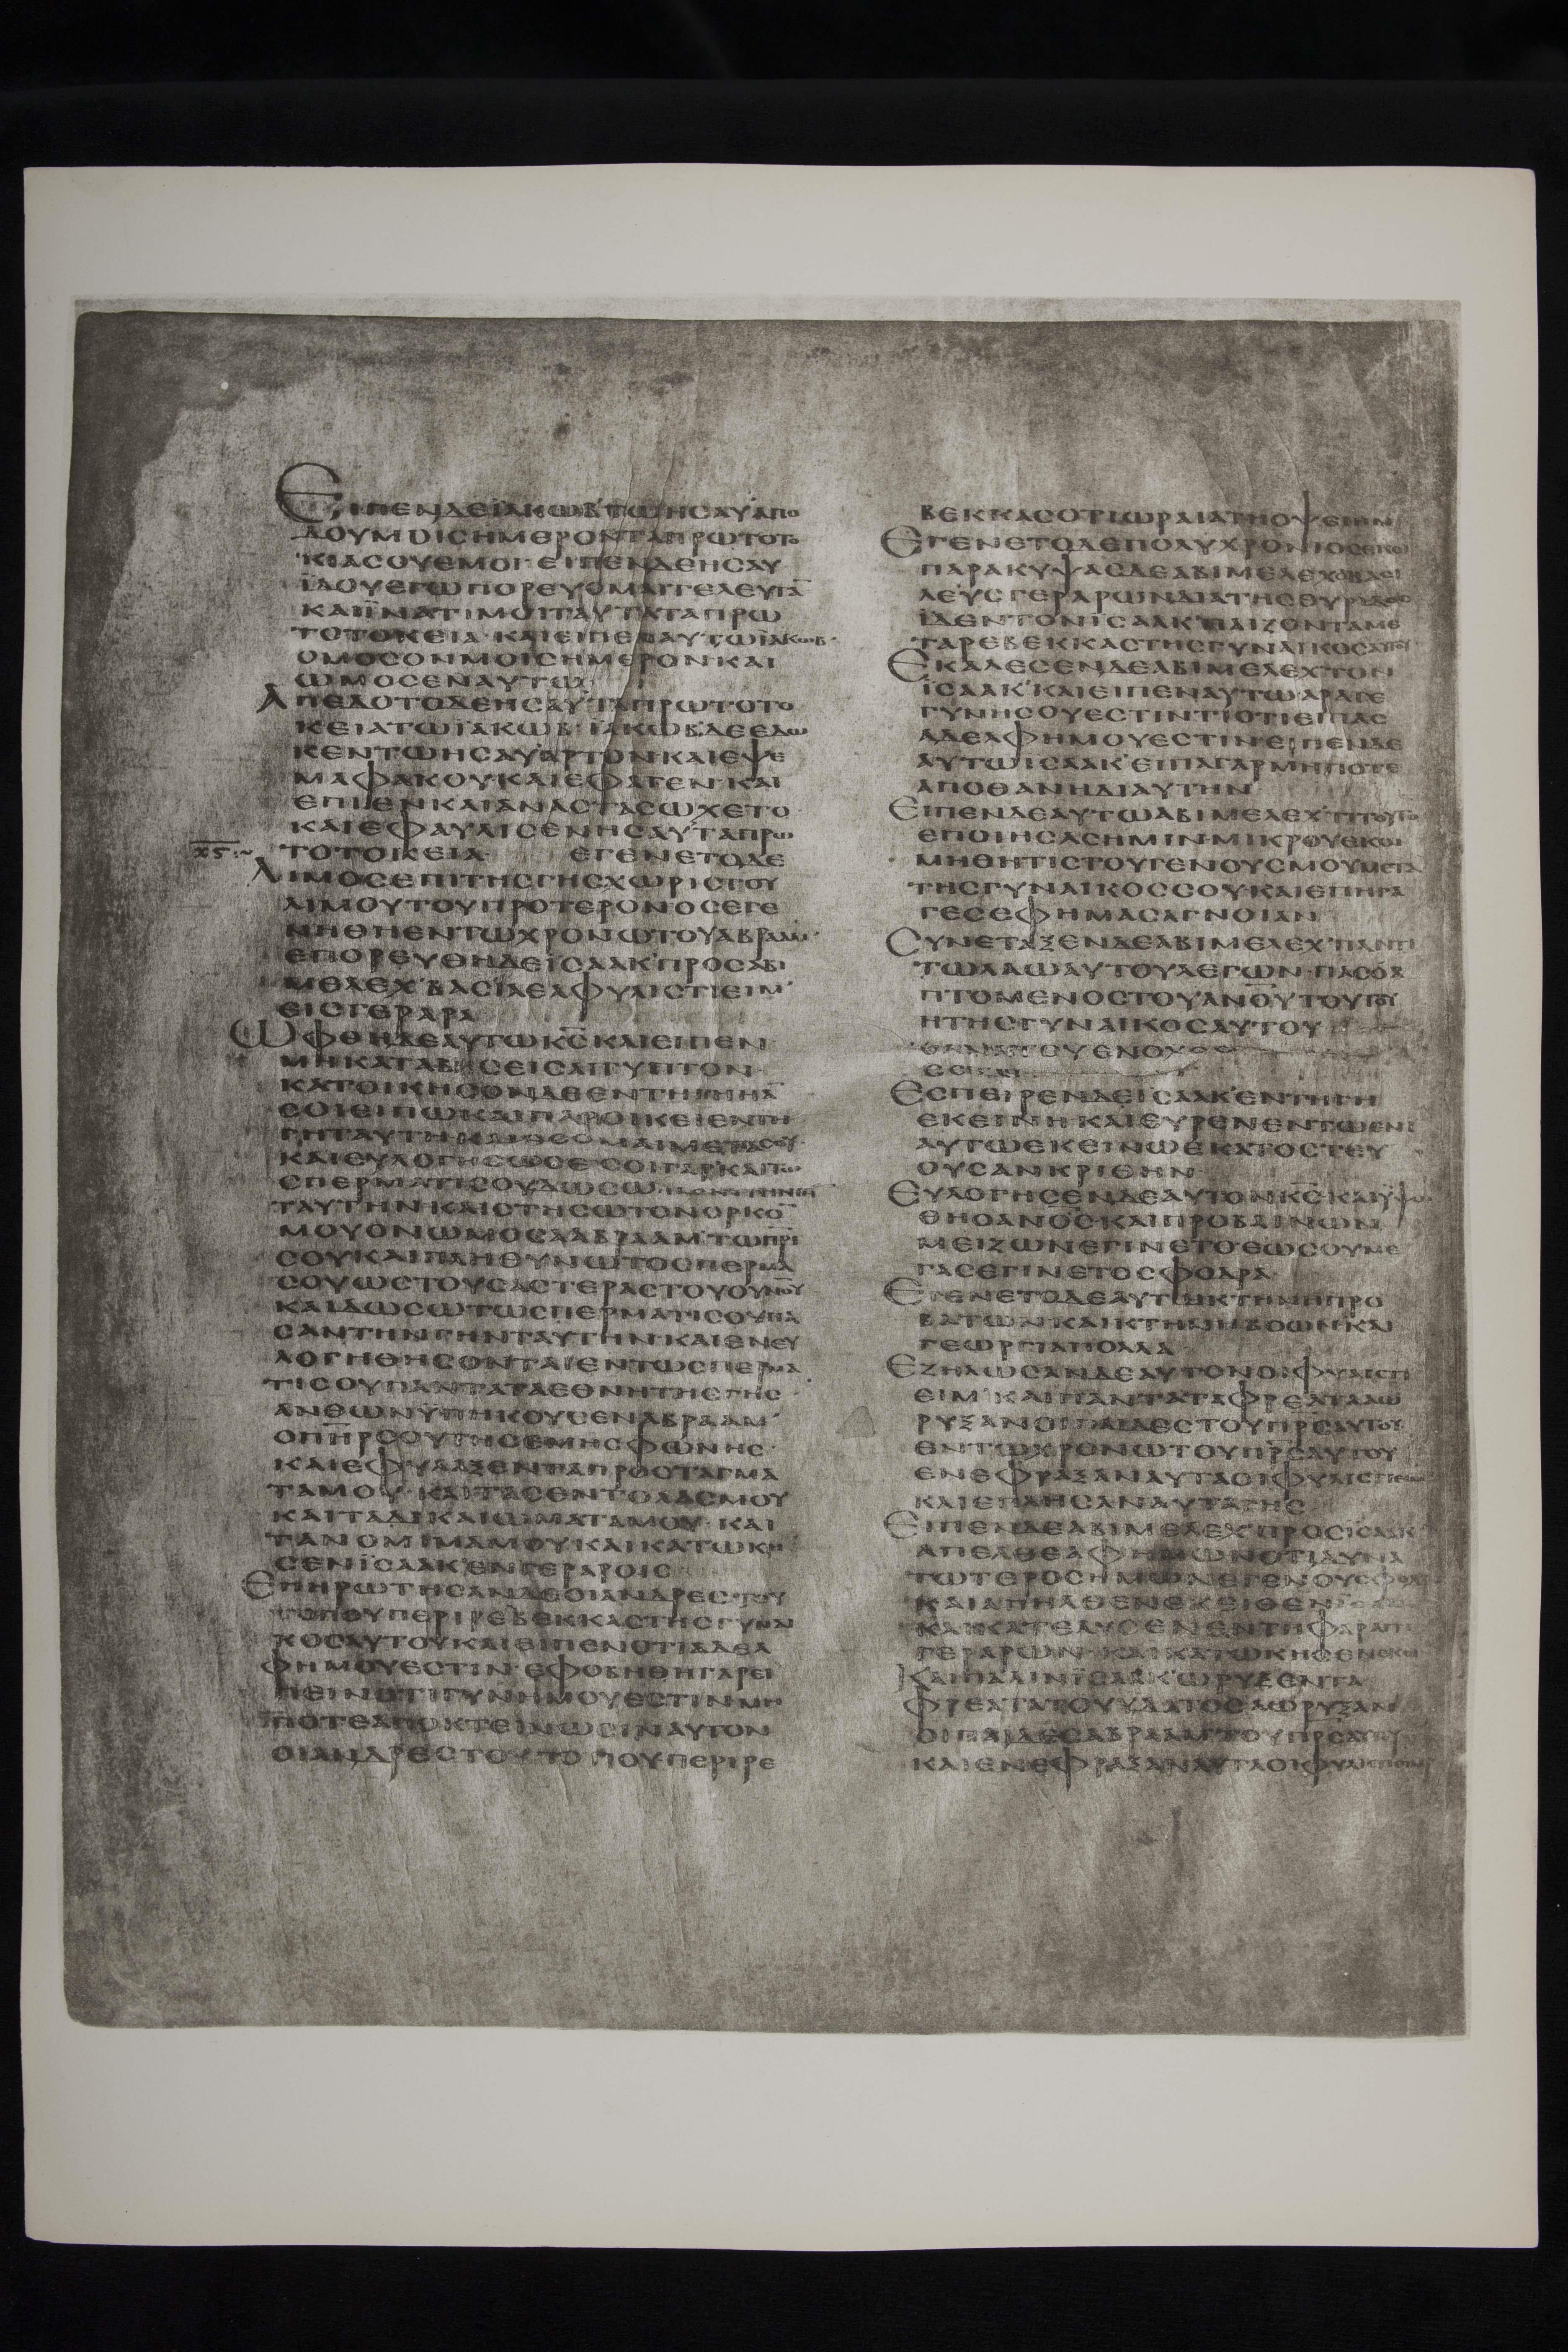 ΕΙΠΕΝΔΕΪΑΚΩΒΤΩΗΣΑΥΑΠΟ
ΔΟΥΜΟΙΣΗΜΕΡΟΝΤΑΠΡΩΤΟΤΟ
ΚΙΑΣΟΥΕΜΟΙ·ΕΙΠΕΝΔΕΗΣΑΥ
ΪΔΟΥΕΓΩΠΟΡΕΥΟΜΑΙ
ΚΑΙΪΝΑΤΙΜΟΙΤΑΥΤΑΤΑΠΡΩ
ΤΟΤΟΚΕΙΑ·ΚΑΙΕΙΠΕΝΑΥΤΩΪΑΚΩΒ·
ΟΜΟΣΟΝΜΟΙΣΗΜΕΡΟΝΚΑΙ
ΩΜΟΣΕΝΑΥΤΩ
ΑΠΕΔΟΤΟΔΕΗΣΑΥΤΑΠΡΩΤΟΤΟ
ΚΕΙΑΤΩΪΑΚΩΒ·ΪΑΚΩΒΔΕΕΔΩ
ΚΕΝΤΩΗΣΑΥΑΡΤΟΝΚΑΙΕΨΕ
ΜΑΦΑΚΟΥΚΑΙΕΦΑΓΕΝΚΑΙ
ΕΠΙΕΝΚΑΙΑΝΑΣΤΑΣΩΧΕΤΟ
ΚΑΙΕΦΑΥΛΙΣΕΝΗΣΑΥΤΑΠΡΩ
ΤΟΤΟΚΕΙΑ ΕΓΕΝΕΤΟΔΕ
ΛΙΜΟΣΕΠΙΤΗΣΓΗΣΧΩΡΙΣΤΟΥ
ΛΙΜΟΥΤΟΥΠΡΟΤΕΡΟΝΟΣΕΓΕ
ΝΗΘΗΕΝΤΩΧΡΟΝΩΤΟΥΑΒΡΑΑΜ·
ΕΠΟΡΕΥΘΗΔΕΪΣΑΑΚΠΡΟΣΑΒΙ
ΜΕΛΕΧΒΑΣΙΛΕΑΦΥΛΙΣΤΙΕΙΜ
ΕΙΣΓΕΡΑΡΑ
ΩΦΘΗΔΕΑΥΤΩΚΣΚΑΙΕΙΠΕΝ
ΜΗΚΑΤΑΒΗΣΕΙΣΑΙΓΥΠΤΟΝ
ΚΑΤΟΙΚΗΣΟΝΔΕΕΝΤΗΓΗΗΑ
ΣΟΙΕΙΠΩΚΑΙΠΑΡΟΙΚΕΙΕΝΤΗ
ΓΗΤΑΥΤΗΚΑΙΕΣΟΜΑΙΜΕΤΑΣΟΥ
ΚΑΙΕΥΛΟΓΗΣΩΣΕΣΟΙΓΑΡΚΑΙΤΩ
ΣΠΕΡΜΑΤΙΣΟΥΔΩΣΩ
ΤΑΥΤΗΝΚΑΙΣΤΗΣΩΤΟΝΟΡΚΟ
ΜΟΥΟΝΩΜΟΣΑΑΒΡΑΑΜΤΩΠΡΙ
ΣΟΥΚΑΙΠΛΗΘΥΝΩΤΟΣΠΕΡΜΑ
ΣΟΥΩΣΤΟΥΣΑΣΤΕΡΑΣΤΟΥΟΥΝΟΥ
ΚΑΙΔΩΣΩΤΩΣΠΕΡΜΑΤΙΣΟΥΠΑ
ΣΑΝΤΗΝΓΗΝΤΑΥΤΗΝΚΑΙΕΝΕΥ
ΛΟΓΗΘΗΣΟΝΤΑΙΕΝΤΩΣΠΕΡΜΑ
ΤΙΣΟΥΠΑΝΤΑΤΑΕΘΝΗΤΗΣΓΗΣ
ΑΝΘΩΝΫΠΗΚΟΥΣΕΝΑΒΡΑΑΜ
ΟΠΗΡΣΟΥΤΗΣΕΜΗΣΦΩΝΗΣ·
ΚΑΙΕΦΥΛΑΞΕΝΤΑΠΡΟΣΤΑΓΜΑ
ΤΑΜΟΥ·ΚΑΙΤΑΣΕΝΤΟΛΑΣΜΟΥ
ΚΑΙΤΑΔΙΚΑΙΩΜΑΤΑΜΟΥ·ΚΑΙ
ΤΑΝΟΜΙΜΑΜΟΥΚΑΙΚΑΤΩΚΗ
ΣΕΝΪΣΑΑΚΕΝΓΕΡΑΡΟΙΣ
ΕΠΗΡΩΤΗΣΑΝΔΕΟΙΑΝΔΡΕΣΤΟΥ
ΤΟΠΟΥΠΕΡΙΡΕΒΕΚΚΑΣΤΗΣΓΥΝΑΙ
ΚΟΣΑΥΤΟΥΚΑΙΕΙΠΕΝΟΤΙΑΔΕΛ
ΦΗΜΟΥΕΣΤΙΝ·ΕΦΟΒΗΘΗΓΑΡΕΙ
ΠΕΙΝΟΤΙΓΥΝΗΜΟΥΕΣΤΙΝΜΗ
ΠΟΤΕΑΠΟΚΤΕΙΝΩΣΙΝΑΥΤΟΝ
ΟΙΑΝΔΡΕΣΤΟΥΤΟΠΟΥΠΕΡΙΡΕ
ΒΕΚΚΑΣΟΤΙΩΡΑΙΑΤΗΟΨΕΙΗΝ
ΕΓΕΝΕΤΟΔΕΠΟΛΥΧΡΟΝΙΟΣΕΚΕΙ
ΠΑΡΑΚΥΨΑΣΔΕΑΒΙΜΕΛΕΧΟΒΑΣΙ
ΛΕΥΣΓΕΡΑΡΩΝΔΙΑΤΗΣΘΥΡΙΔΟΣ
ΪΔΕΝΤΟΝΪΣΑΑΚΠΑΙΖΟΝΤΑΜΕ
ΤΑΡΕΒΕΚΚΑΣΤΗΣΓΥΝΑΙΚΟΣΑΥΤΟΥ
ΕΚΑΛΕΣΕΝΔΕΑΒΙΜΕΛΕΧΤΟΝ
ΪΣΑΑΚΚΑΙΕΙΠΕΝΑΥΤΩΑΡΑΓΕ
ΓΥΝΗΣΟΥΕΣΤΙΝΤΙΟΤΙΕΙΠΑΣ
ΑΔΕΛΦΗΜΟΥΕΣΤΙΝ·ΕΙΠΕΝΔΕ
ΑΥΤΩΪΣΑΑΚΕΙΠΑΓΑΡΜΗΠΟΤΕ
ΑΠΟΘΑΝΗΔΙΑΥΤΗΝ
ΕΙΠΕΝΔΕΑΥΤΩΑΒΙΜΕΛΕΧΤΙΤΟΥΤΟ
ΕΠΟΙΗΣΑΣΗΜΙΝΜΙΚΡΟΥΕΚΟΙ
ΜΗΘΗΤΙΣΤΟΥΓΕΝΟΥΣΜΟΥΜΕΤΑ
ΤΗΣΓΥΝΑΙΚΟΣΣΟΥΚΑΙΕΠΗΓΑ
ΓΕΣΕΦΗΜΑΣΑΓΝΟΙΑΝ
ΣΥΝΕΤΑΞΕΝΔΕΑΒΙΜΕΛΕΧΠΑΝΤΙ
ΤΩΛΑΩΑΥΤΟΥΛΕΓΩΝ·ΠΑΣΟΑ
ΠΤΟΜΕΝΟΣΤΟΥΑΝΟΥΤΟΥΤΟΥ
ΗΤΗΣΓΥΝΑΙΚΟΣΑΥΤΟΥ
ΘΑΝΑΤΟΥΕΝΟΧΟΣ
ΕΣΤΑΙ
ΕΣΠΕΙΡΕΝΔΕΪΣΑΑΚΕΝΤΗΓΗ
ΕΚΕΙΝΗΚΑΙΕΥΡΕΝΕΝΤΩΕΝΙ
ΑΥΤΩΕΚΕΙΝΩΕΚΑΤΟΣΤΕΥ
ΟΥΣΑΝΚΡΙΘΗΝ
ΕΥΛΟΓΗΣΕΝΔΕΑΥΤΟΝΚΣΚΑΙΫΨΩ
ΘΗΟΑΝΟΣΚΑΙΠΡΟΒΑΙΝΩΝ
ΜΕΙΖΩΝΕΓΙΝΕΤΟΕΩΣΟΥΜΕ
ΓΑΣΕΓΙΝΕΤΟΣΦΟΔΡΑ
ΕΓΕΝΕΤΟΔΕΑΥΤΩΚΤΗΝΗΠΡΟ
ΒΑΤΩΝΚΑΙΚΤΗΝΗΒΟΩΝΚΑΙ
ΓΕΩΡΓΙΑΠΟΛΛΑ
ΕΖΗΛΩΣΑΝΔΕΑΥΤΟΝΟΙΦΥΛΙΣΤΙ
ΕΙΜΚΑΙΠΑΝΤΑΤΑΦΡΕΑΤΑΑΩ
ΡΥΞΑΝΟΙΠΑΙΔΕΣΤΟΥΠΡΣΑΥΤΟΥ
ΕΝΤΩΧΡΟΝΩΤΟΥΠΡΣΑΥΤΟΥ
ΕΝΕΦΡΑΞΑΝΑΥΤΑΟΙΦΥΛΙΣΤΙΕΙΜ
ΚΑΙΕΠΛΗΣΑΝΑΥΤΑΓΗΣ
ΕΙΠΕΝΔΕΑΒΙΜΕΛΕΧΠΡΟΣΪΣΑΑΚ
ΑΠΕΛΘΕΑΦΗΜΩΝΟΤΙΔΥΝΑ
ΤΩΤΕΡΟΣΗΜΩΝΕΓΕΝΟΥΣΦΟΔΡΑ
ΚΑΙΑΠΗΛΘΕΝΕΚΕΙΘΕΝ
ΚΑΙΚΑΤΕΛΥΣΕΝΕΝΤΗΦΑΡΑΓΓΙ
ΓΕΡΑΡΩΝ·ΚΑΙΚΑΤΩΚΗΣΕΝΕΚΕΙ
ΚΑΙΠΑΛΙΝΪΣΑΑΚΩΡΥΞΕΝΤΑ
ΦΡΕΑΤΑΤΟΥΥΔΑΤΟΣΑΩΡΥΞΑΝ
ΟΙΠΑΙΔΕΣΑΒΡΑΑΜΤΟΥΠΡΣΑΥΤΟΥ
ΚΑΙΕΝΕΦΡΑΞΑΝΑΥΤΑΟΙΦΥΛΙΣΤΙΕΙΜ